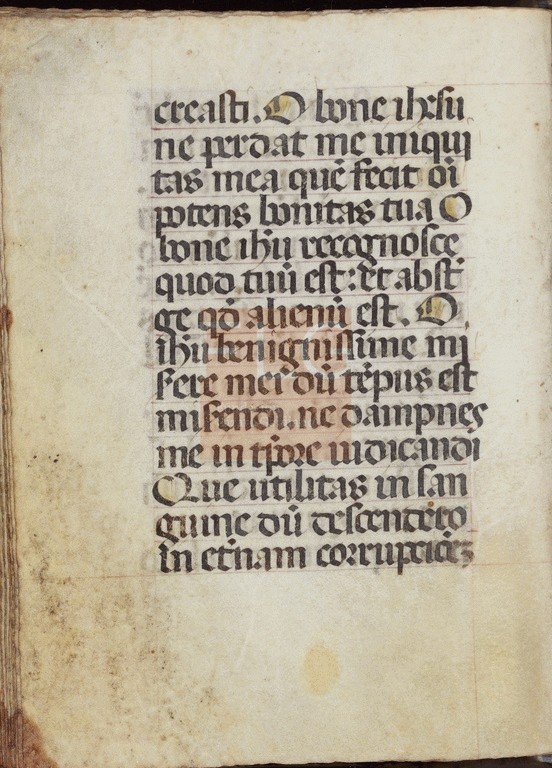 creasti. O bone ihesu
ne perdat me iniqui
tas mea quē fecit oī
potens bonitas tua O
bone ihū recognosce
quod tuū est: et abst̄
ge qd̄ alienū est. O
ihū benignissime mi
sere mei dū tēpus est
miserendi. ne dampnes
me in tp̄ore iudicandi
Que utilitas in san
guine dū descendero
in et̄nam corrupcionē